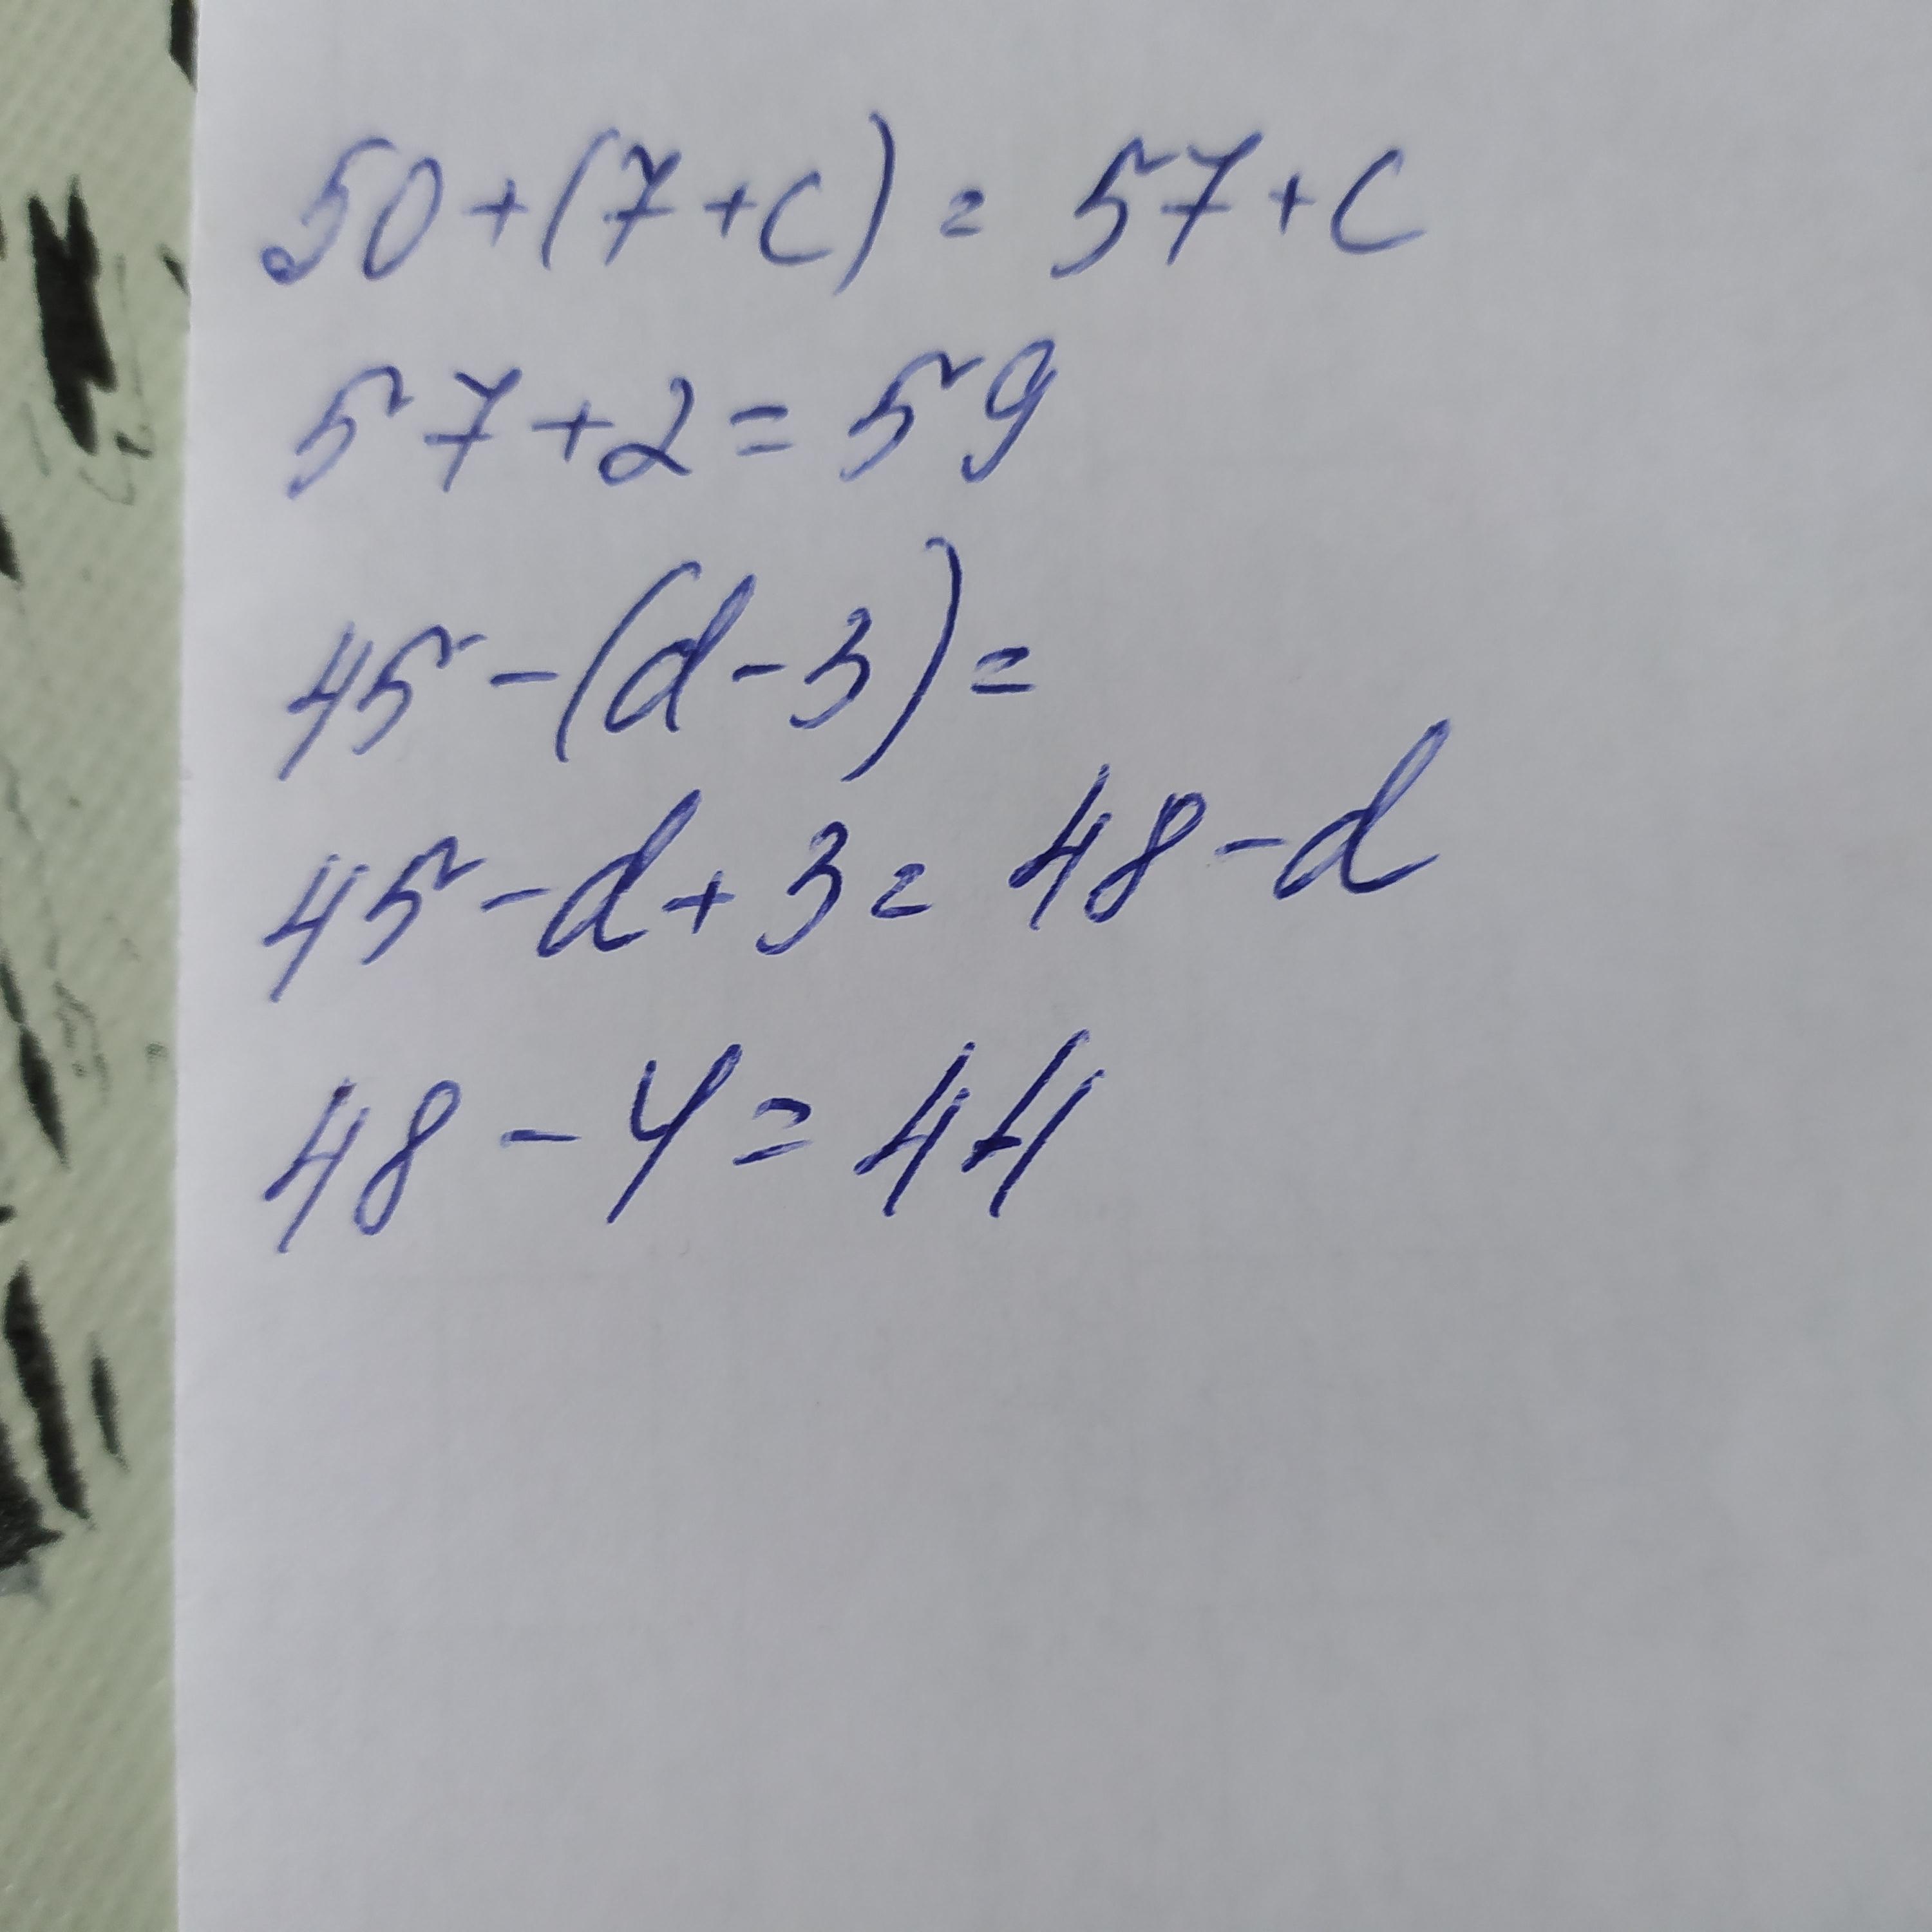 50+(7+c)=57+c
57+2=59
45-(d-3)=
45-d+3=48-d
48-4=44